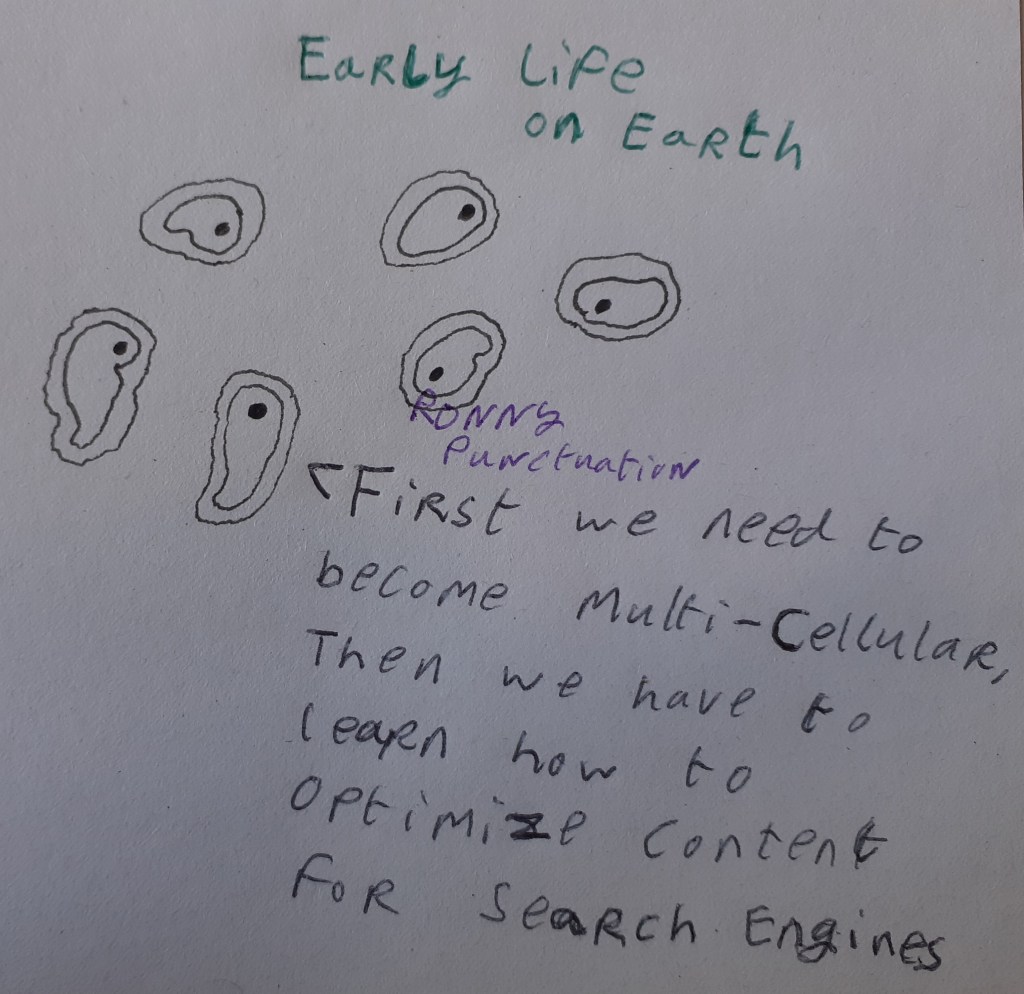 Early Life
on Earth
Ronny
Punctuation
First we need to
become Multi-Cellular,
Then we have to
learn how to
Optimize Content
For Search Engines